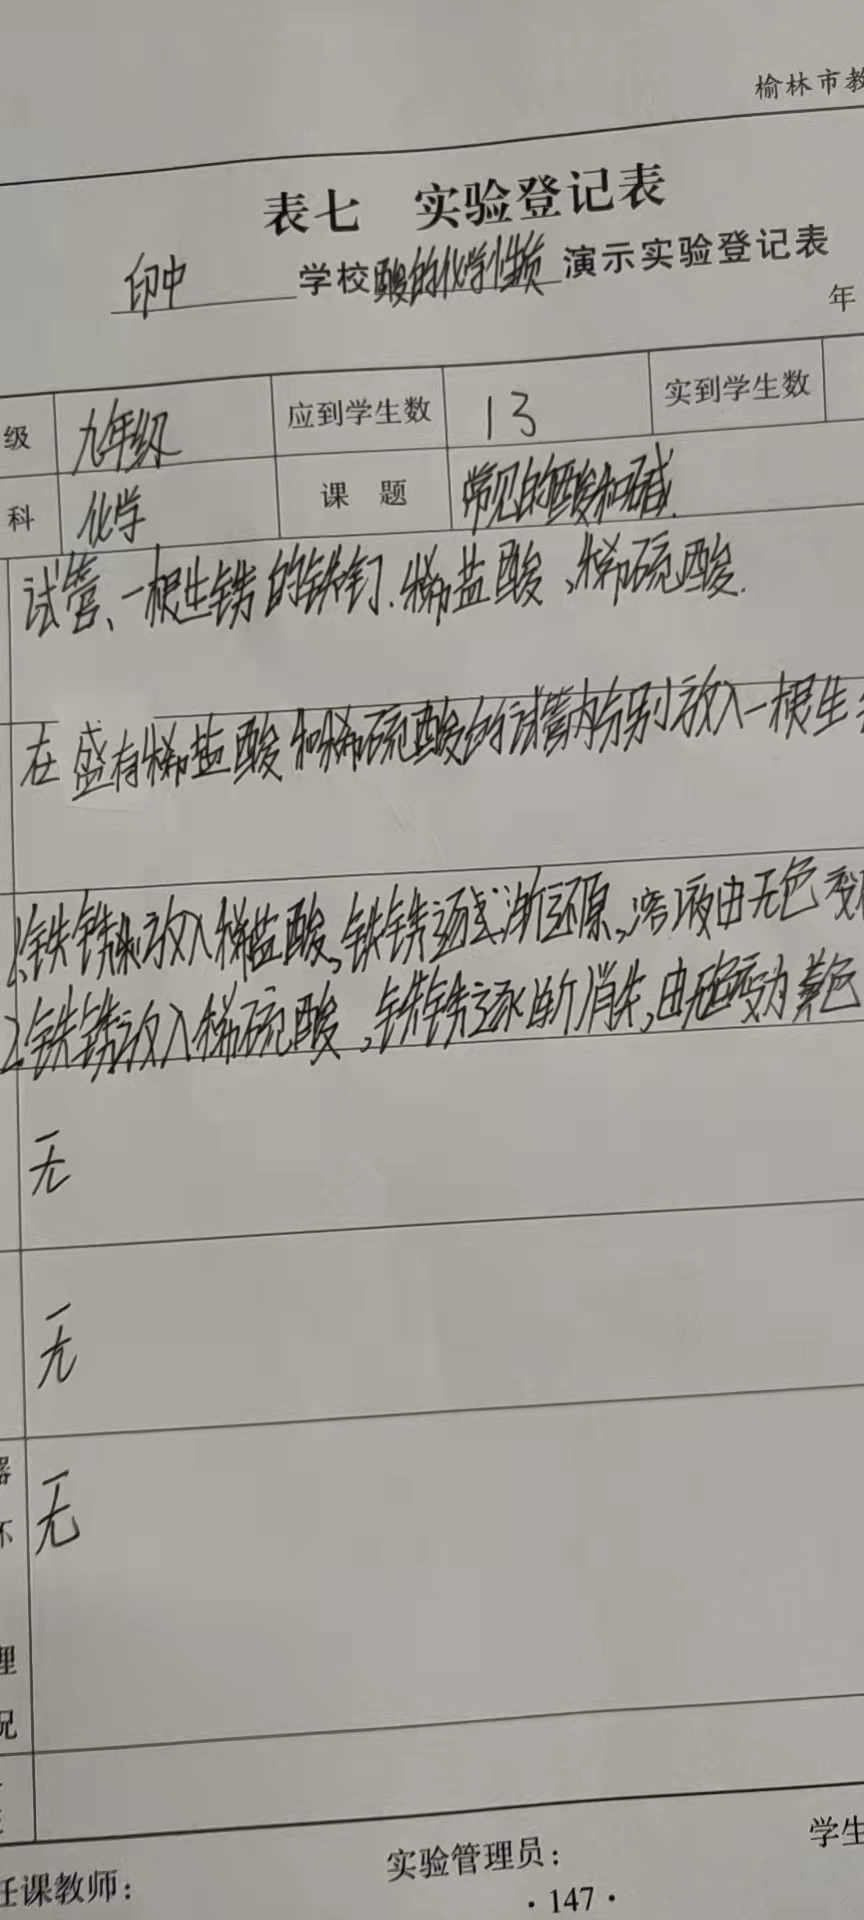 榆林市教
表七 实验登记表
印中 学校 酸的化学性质 演示实验登记表
年
级 九年级 应到学生数 13 实到学生数
科 化学 课题 常见的酸和碱.
试管、一根生锈的铁钉.稀盐酸、稀硫酸.
在盛有稀盐酸和稀硫酸的试管内分别放入一根生
1.铁锈放入稀盐酸,铁锈逐渐还原,溶液由无色变
2.铁锈放入稀硫酸,铁锈逐渐消失,由无色变为黄色
无
无
器 无
坏
理
况
任课教师: 实验管理员: 学生
·147·